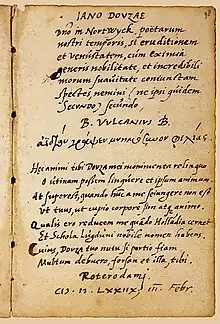 IANO DOVZAE
viro in Nortwyck, poëtarum
nostri temporis, si eruditionem
et venustatem, cum eximia
generis nobilitate, et incredibili
morum suavitate coniunctam
spectes nemini (ne ipsi quidem
Secundo) secundo,
B. VULCANIUS B.
μνημόσυνον φιλίας
Hec animi tibi Dovza mei monimenta relinquo
O utinam possem linquere et ipsum animum
At superest, quando huic me seiungere non est
Ut tuus, ut cupio corpore sim atque animo.
Qualis ero reducem me quando Hollandia cernet
Et Schola Lugduni nobile nomen habens
Cuius, Dovza tuo nutu si portio fiam
Multum debuero, forsan et illa, tibi.
Roterodami.
CIƆ. IƆ. LXXIIX, III. Febr.